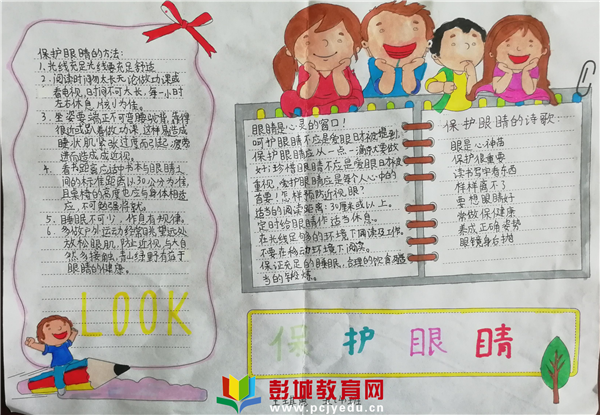 保护眼睛的方法:
1.光线充足光线要充足舒适
2.阅读时间勿太长无论做功课或
看电视,时间不可太长,每一小时
左右休息片刻为佳。
3.坐姿要端正不可弯腰驼背,靠得
很近或趴着做功课,这样易造成
睫状肌紧张过度而引起疲劳
进而造成近视。
4.看书距离应适中书本与眼睛之
间的标准距离以30公分为准,
且桌椅的高度也应与身体相适
应,不可勉强将就。
5.睡眠不可少,作息有规律。
6.多做户外运动经常眺望远处
放松眼肌,防止近视,与大自
然多接触,青山绿野有益于
眼睛的健康。
LOOK
眼睛是心灵的窗口!
呵护眼睛不应是爱眼日才被提到.
保护眼睛应从一点一滴
好珍惜眼睛不应是爱眼日才被
重视,爱护眼睛应是每个人心中的
首要!怎样预防近视眼?
适当的阅读距离:30厘米或以上。
定时给眼睛作适当休息。
在光线足够的环境下阅读及工作。
不要在移动环境下阅读。
保证充足的睡眠,合理的饮食
当的锻炼。
保护眼睛的诗歌:
眼是心神苗
保护很重要
读书写字有东西
样样离不了
要想眼睛好
常做保健操
养成正确姿势
眼镜身后抛
保护眼睛
彭城教育网
www.pcjyedu.cn